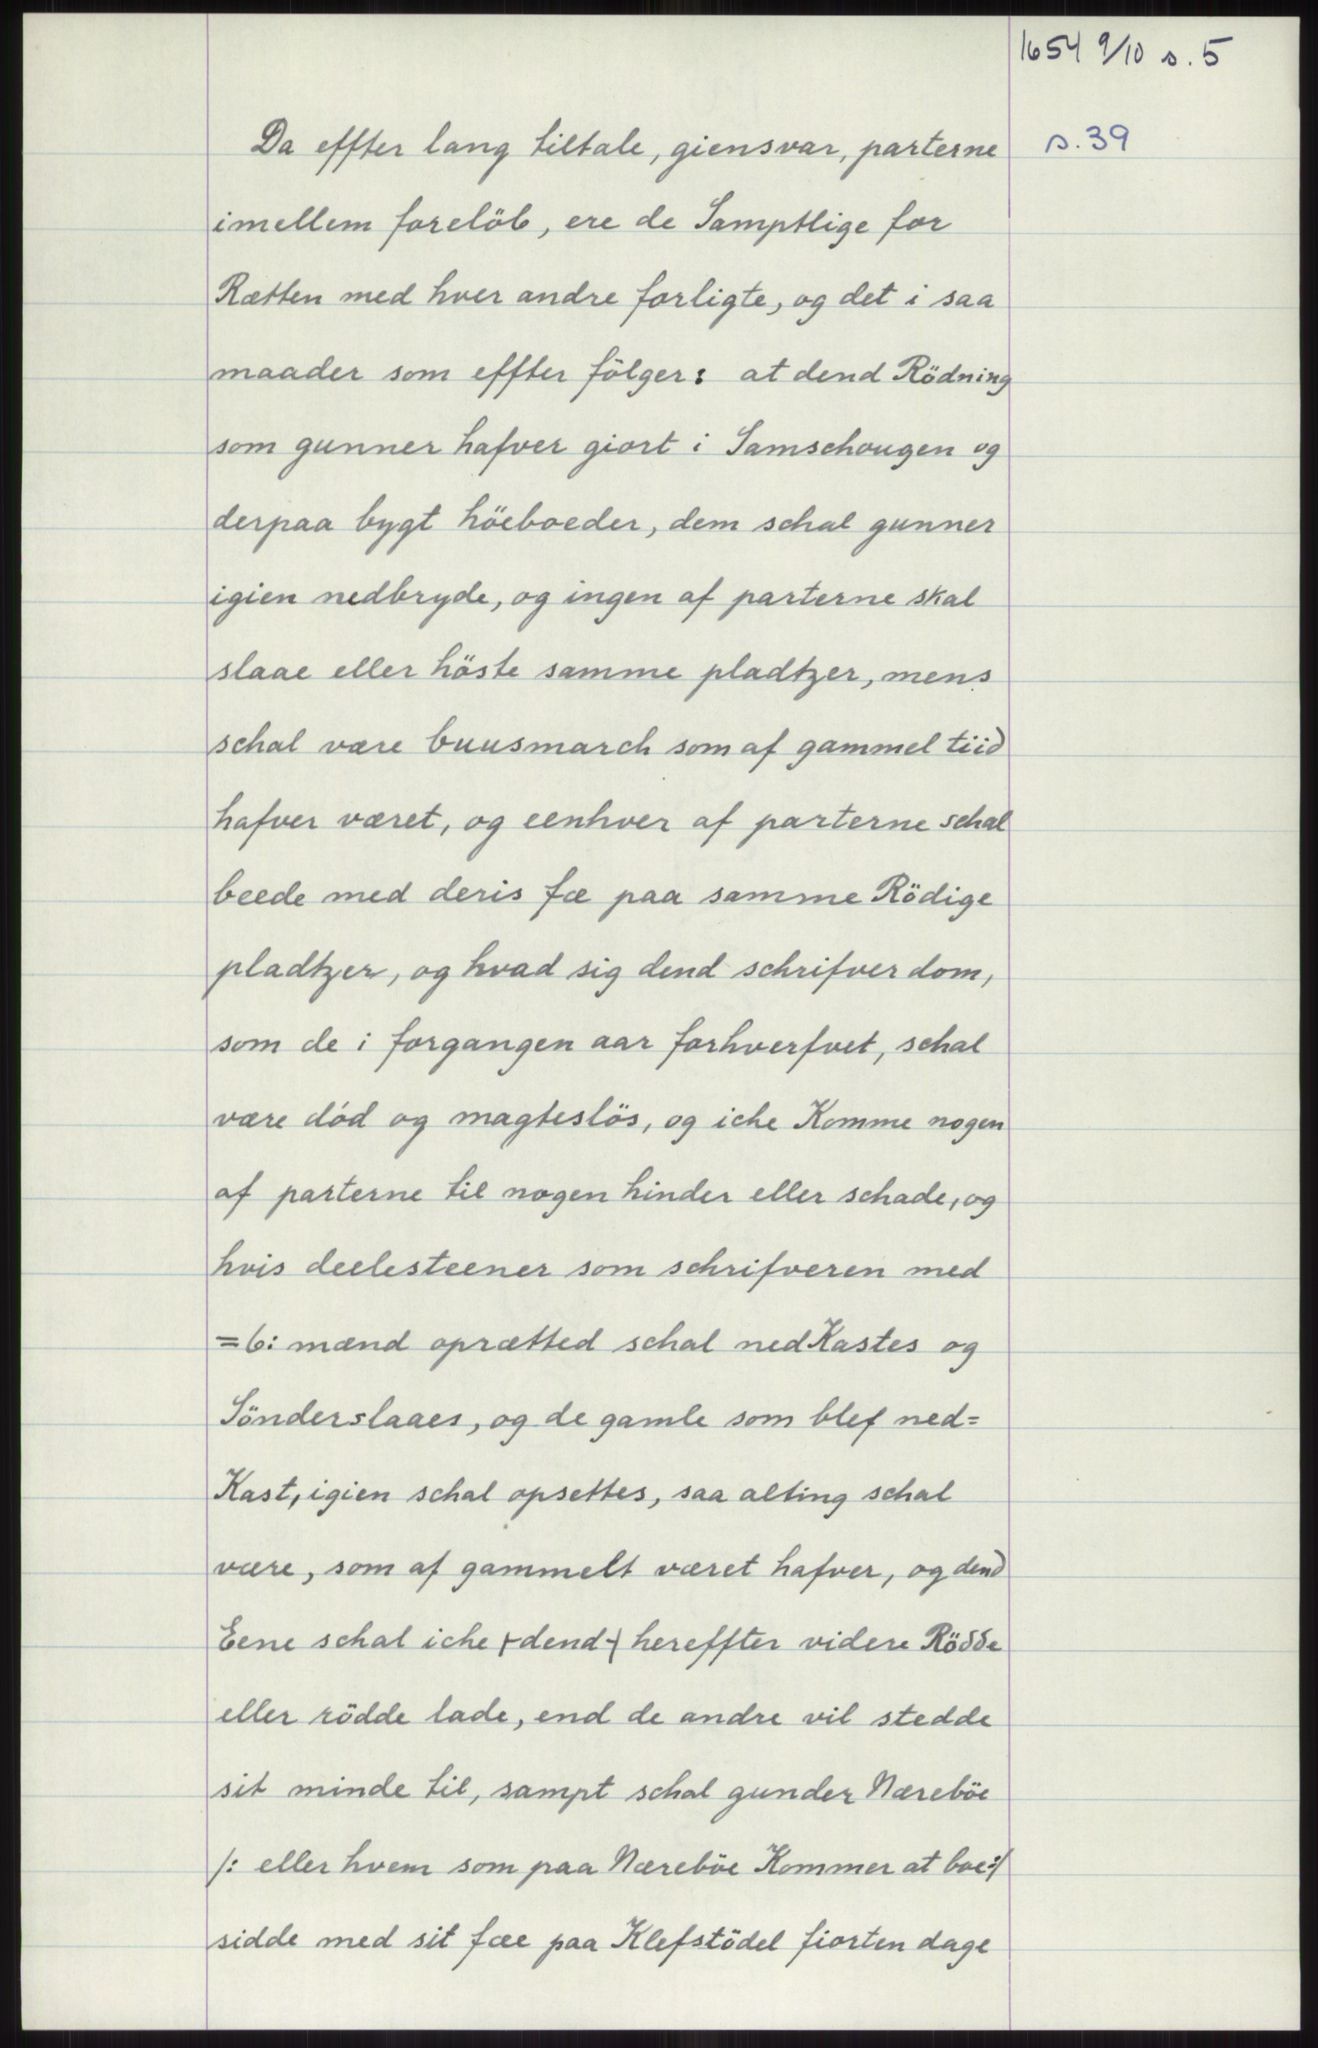 1654 9/10 s. 5
s. 39
Da effter lang tiltale, giensvar, parterne
imellem foreløb, ere de Samptlige for
Rætten med hver andre forligte, og det i saa
maader som effter fölger: at dend Rödning
som gunner hafver giort i Samschougen og
derpaa bygt höeboeder, dem schal gunner
igien nedbryde, og ingen af parterne skal
slaae eller höste samme pladtzer, mens
schal være buusmarch som af gammel tiid
hafver været, og eenhver af parterne schal
beede med deris fæ paa samme Rödige
pladtzer, og hvad sig dend schrifver dom,
som de i forgangen aar forhverfvet, schal
være död og magteslös, og iche Komme nogen
af parterne til nogen hinder eller schade, og
hvis deelesteener som schrifveren med
=6: mænd oprætted schal nedKastes og
Sönderslaaes, og de gamle som blef ned=
Kast, igien schal opsettes, saa alting schal
være, som af gammelt været hafver, og dend
Eene schal iche +dend+ hereffter videre Rödde
eller rödde lade, end de andre vil stedde
sit minde til, sampt schal gunder Næreböe
/: eller hvem som paa Næreböe Kommer at boe:/
sidde med sit fæe paa Klefstödel fiorten dage